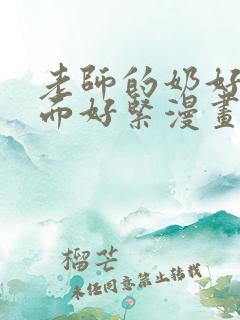 老師的奶好
而好緊漫畫
榴芒
未经同意禁止转载